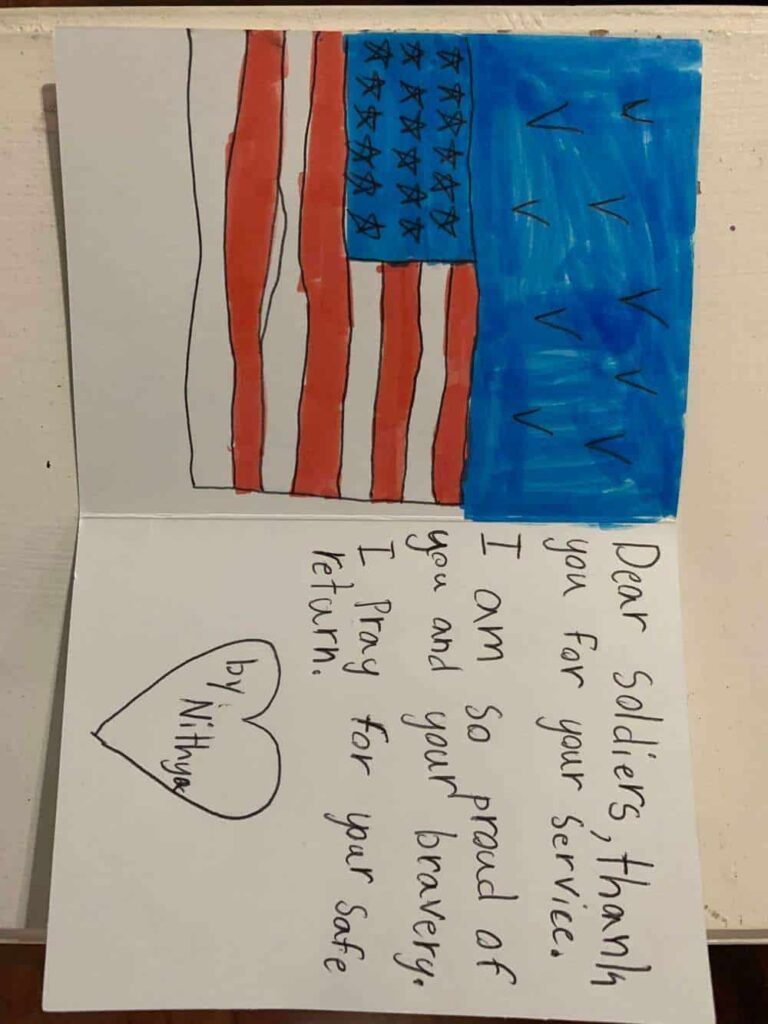 Dear soldiers, thank
you for your service.
I am so proud of
you and your bravery.
I pray for your safe
return.
by
Nithya